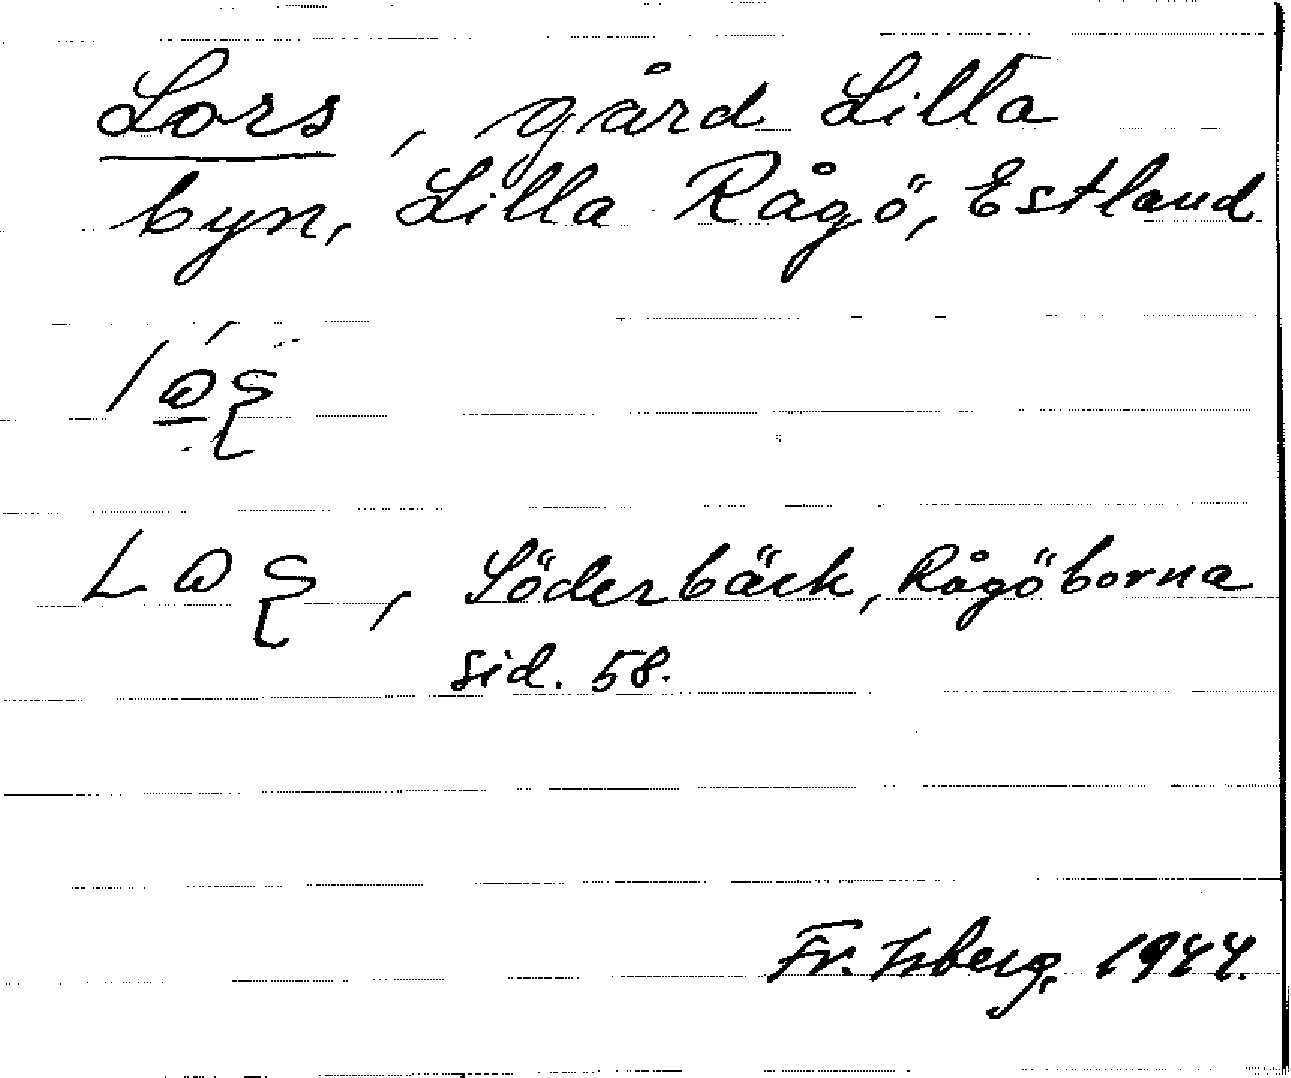 Lors, gård Lilla
byn, Lilla Rågö, Estland
Söderbäck, Rågöborna
sid. 58.
Fr. Isberg, 1944.